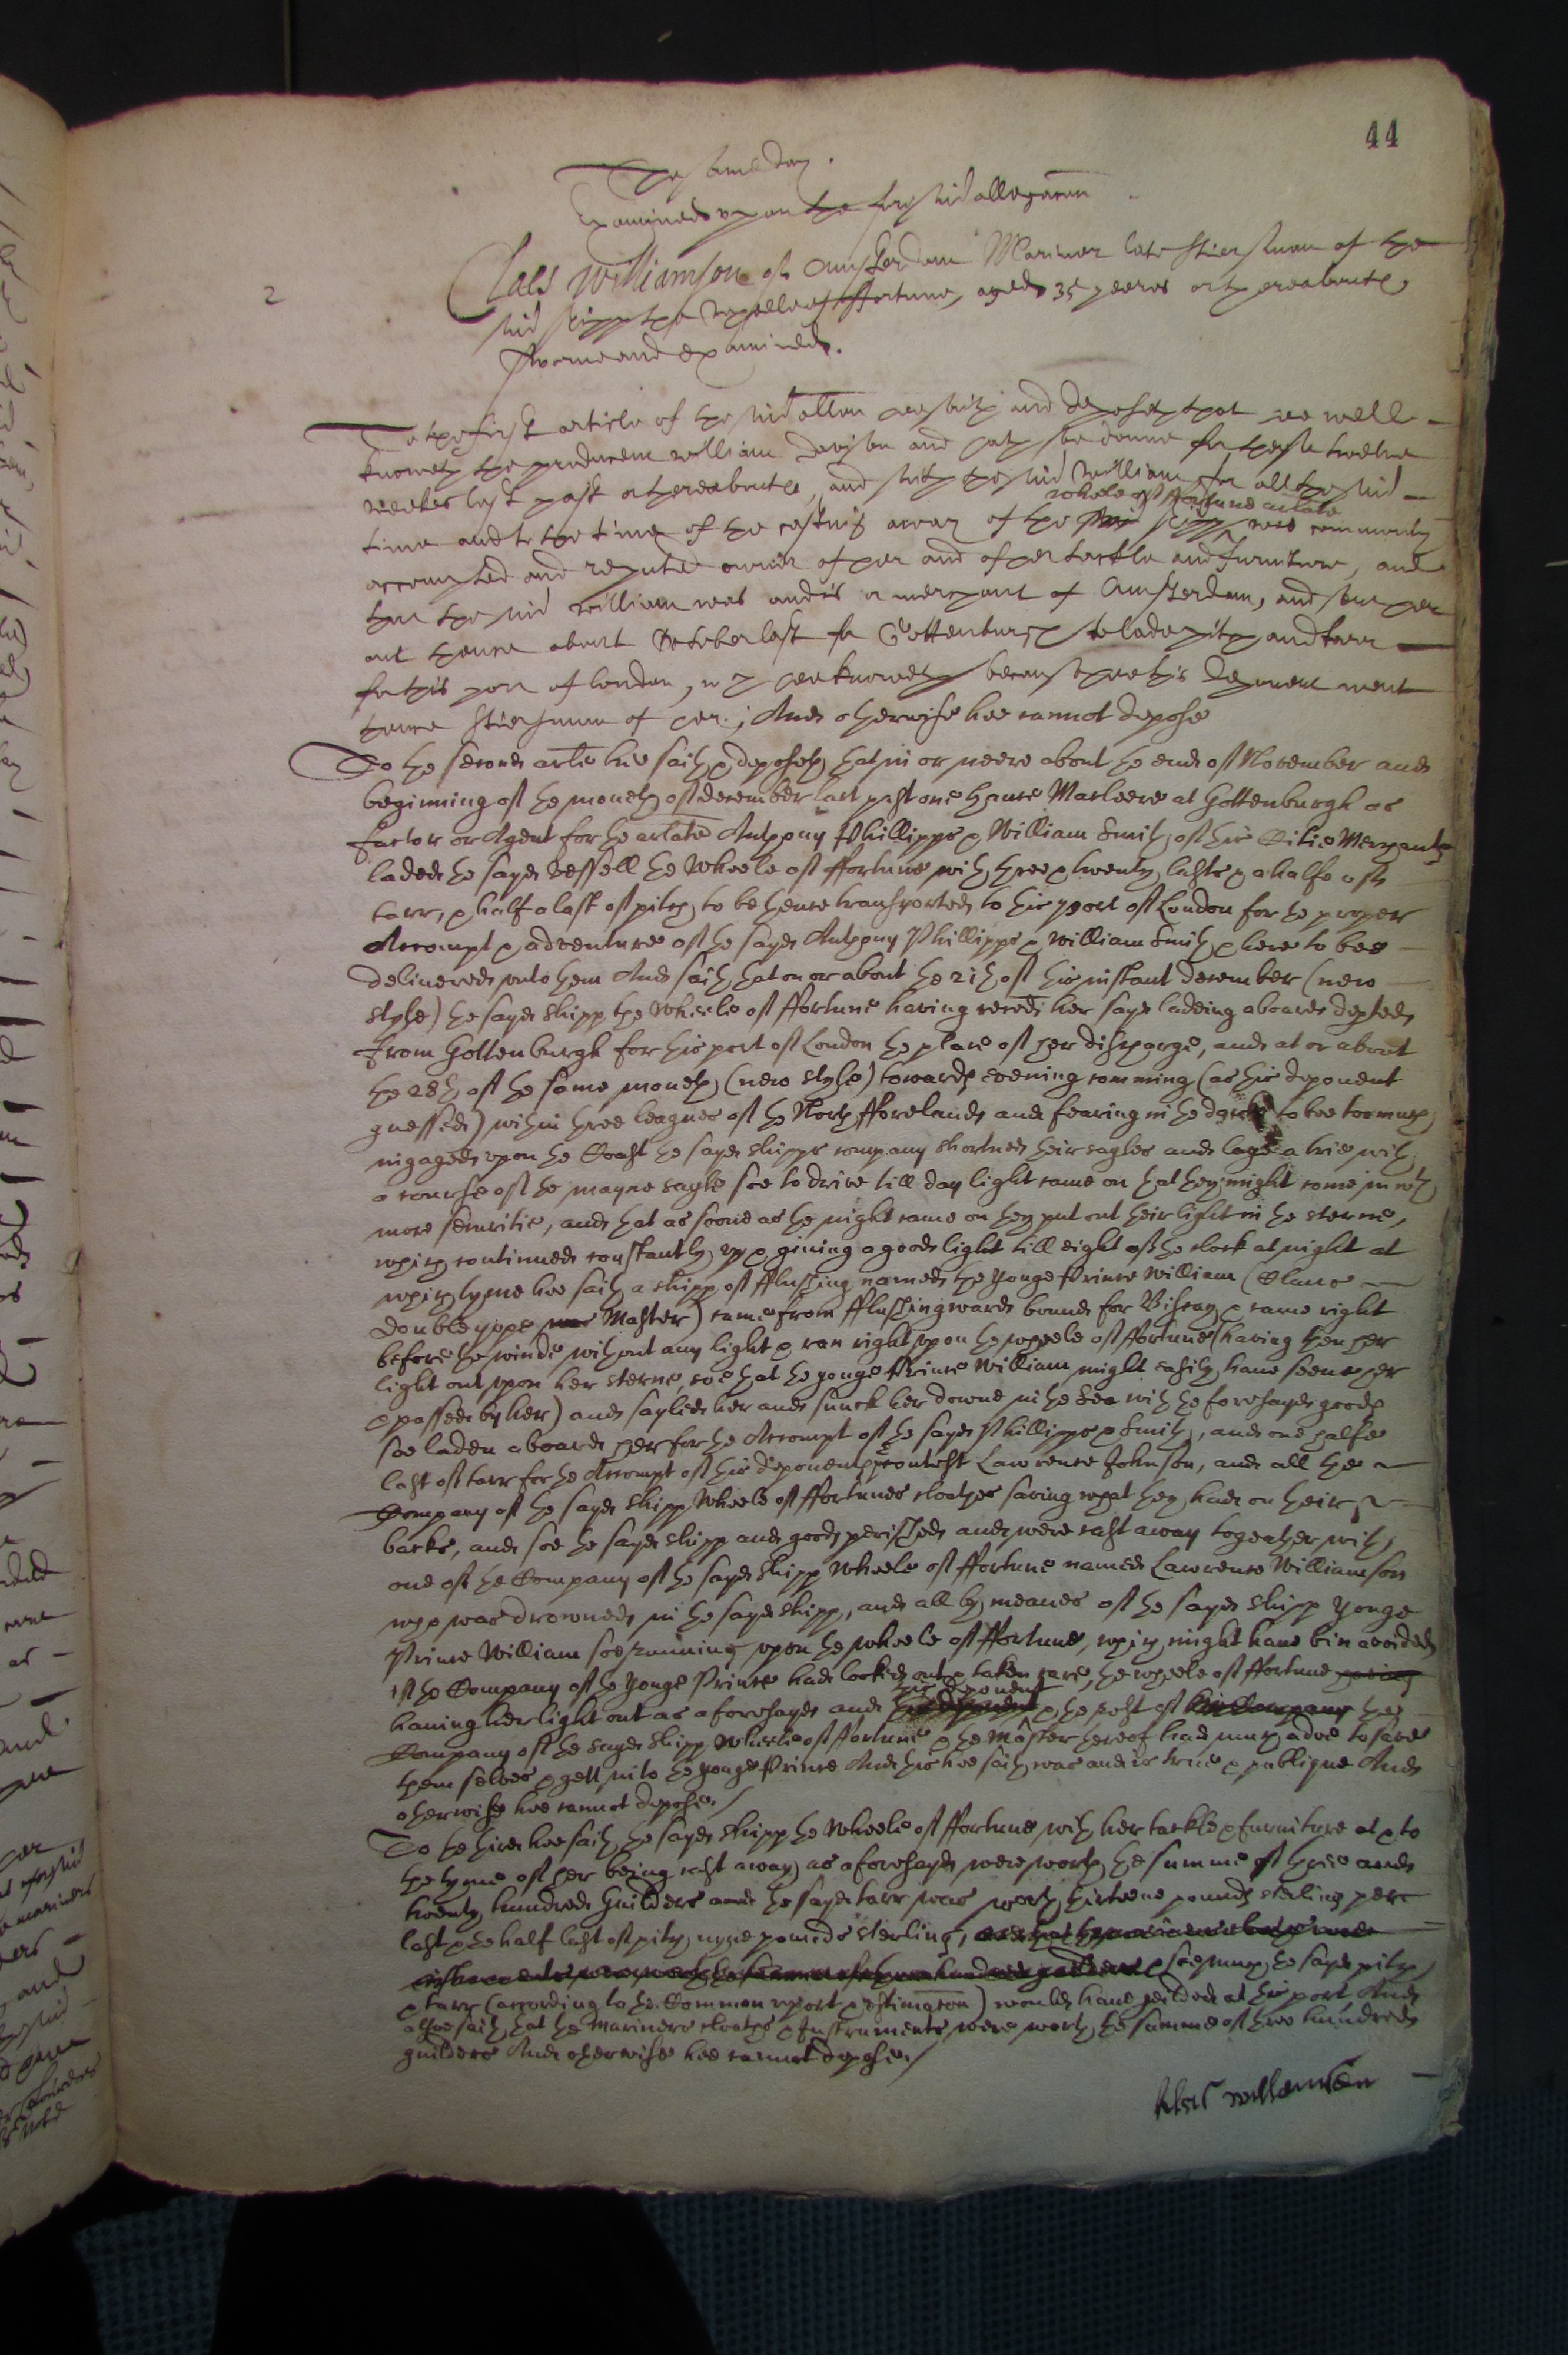 44
The same day.
Examined upon the foresaid allegacon
2
Claes Williamson of Amsterdam Mariner late Stiersman of the
said shipp the wheele of ffortune, aged 35 yeeres or thereaboute,
sworne and examined.
To the first article of the said allon hee saith and deposeth that hee well
knoweth the producent william and hath soe donne for theise twelve
weekes last past or thereaboute, and saith the said william for all the said
time and to the time of the castinge away of the shipp wheele of ffortune arlate was commonly
accompted and reputed owner of her and of her tackle and furniture, and
that the said william was and is a merchant of Amsterdam, and sent her
out thence about October last for Gottenburgh to lade pitch and tarr
for this port of london, wch hee knoweth because hee this deponent went
thence Stiersman of her; And otherwise hee cannot depose
To the second arle hee saith & deposeth that in or neere about the end of November and
beginning of the moneth of december last past one Hance Marleere at Gottenburgh as
factor or Agent for the arlate Anthony Phillipps & William Smith of this Citie Merchants
laded the sayd vessell the Wheele of ffortune with three & twenty lasts & a halfe of
tarr, & half a last of pitch to be hence transported to this port of London for the proper
Accompt & adventure of the sayd Anthony Phillipps & william Smith & here to bee
delivered unto them And saith that on or about the 21th of this instant december (new
style) the sayd shipp the Wheele of ffortune having recd her sayd ladeing aboard depted
from Gottenburgh for this port of London the place of her discharge, and at or about
the 28th of the same moneth (new style) towards evening comming (as this deponent
guessed) within three leagues of the North fforeland and fearing in the darke to bee too much
ingaged upon the Coast the sayd shipps company shortned their sayles and laye a trie with
a course of the mayne sayle soe to drive till day light came on that they might come in with
more securitie, and that as soone as the night came on they put out their light in the sterne,
which continued constantly up & giving a good light till eight of the clock at night at
which tyme hee saith a shipp of fflushing named the Yonge Prince William (Claus
doubleyope was Master) came from fflushingward bound for Biscay & came right
before the winde without any light & ran right upon the wheele of ffortune (having then her
light out upon her sterne, soe that the yonge Prince William might easily have seene her
& passed by her) and sayled her and sunck her downe in the Sea with the foresayd goods
soe laden aboard her for the Accompt of the sayd Phillipps & Smith, and one halfe
last of tarr for the Accompt of this deponents contest Lawrence Johnson, and all the
Company of the sayd shipp Wheele of ffortunes cloathes saving what they had on their
backs, and soe the sayd shipp and goods perished and were cast away together with
one of the Company of the sayd shipp Wheele of ffortune named Lawrence Williamson
who was drowned in the sayd shipp, and all by meanes of the sayd shipp Yonge
Prince William soe running upon the wheele of ffortune, which might have bin avoided
if the Company of the Yonge Prince had looked out & taken care, the wheele of ffortune having
having her light out as aforesayd and this deponent & the rest of his Company the
Company of the sayd shipp Wheele of ffortune & the Master thereof had much adoe to save
themselves & gett into the yonge Prince And this hee saith was and is true & publique And
otherwise hee cannot depose./
To the third hee saith the sayd shipp the Wheele of ffortune with her tackle & furniture at & to
the tyme of her being cast away as aforesayd were worth the summe of three and
twenty hundred Guilders and the sayd tarr was worth thirteene pounds sterling per
last & the half last of pitch nyne pounds sterling,
& soe much the sayd pitch
& tarr (according to the Common report & estimacon) would have yeilded at this port And
alsoe saith that the Mariners cloathes & Instruments were worth the summe of three hundred
guilders And otherwise hee cannot depose./
Klaes willemsen